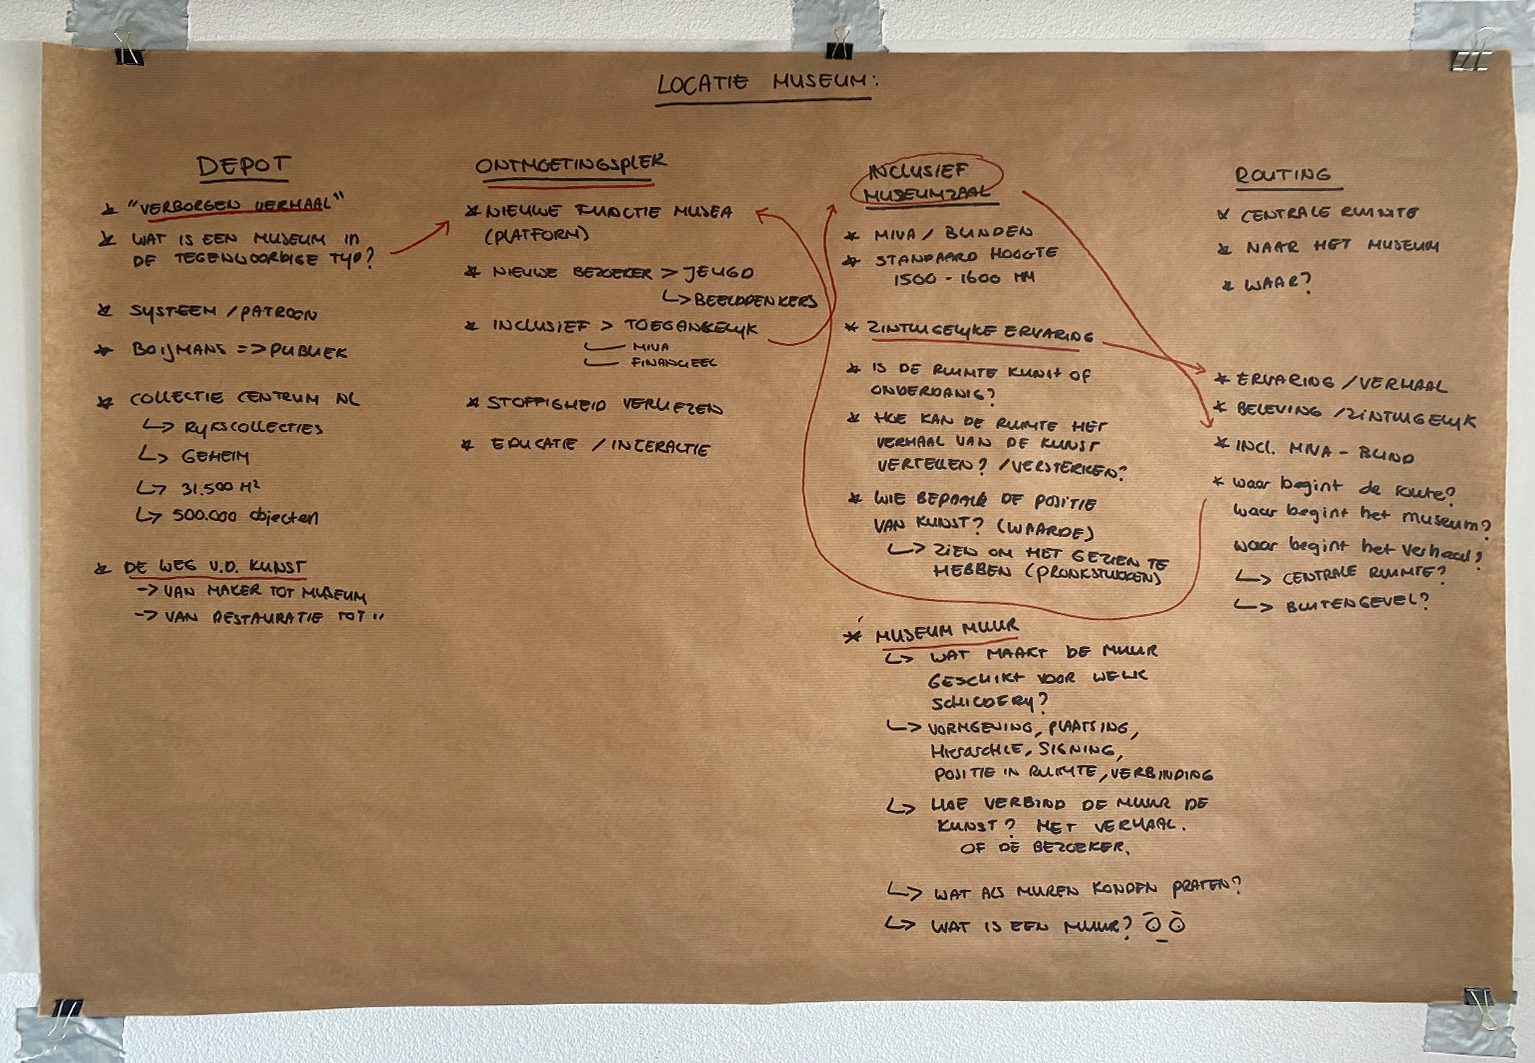 LOCATIE MUSEUM:
DEPOT
* "VERBORGEN VERHAAL"
* WAT IS EEN MUSEUM IN
DE TEGENWOORDIGE TYD?
* SYSTEEM / PATROON
* BOIJMANS => PUBLIEK
* COLLECTIE CENTRUM NL
↳ RYKSCOLLECTIES
↳ GEHEIM
↳ 31.500 M²
↳ 500.000 objecten
* DE WEG V.D. KUNST
-> VAN MAKER TOT MUSEUM
-> VAN RESTAURATIE TOT "
ONTMOETINGSPLEK
* NIEUWE FUNCTIE MUSEA
(PLATFORM)
* NIEUWE BEZOEKER > JEUGD
↳ BEELDDENKERS
* INCLUSIEF > TOEGANKELYK
MIVA
FINANCIEEL
* STOFFIGHEID VERLIEZEN
* EDUCATIE / INTERACTIE
INCLUSIEF
MUSEUMZAAL
* MIVA / BLINDEN
* STANDAARD HOOGTE
1500 - 1600 MM
* ZINTUIGELYKE ERVARING
* IS DE RUIMTE KUNST OF
ONDERDANIG?
* HOE KAN DE RUIMTE HET
VERHAAL VAN DE KUNST
VERTELLEN? /VERSTERKEN?
* WIE BEPAALD DE POSITIE
VAN KUNST? (WAARDE)
↳ ZIEN OM HET GEZIEN TE
HEBBEN (PRONKSTUKKEN)
* MUSEUM MUUR
↳ WAT MAAKT DE MUUR
GESCHIKT VOOR WELK
SCHILDERY?
↳ VORMGEVING, PLAATSING,
HIERARCHIE, SIGNING,
POSITIE IN RUIMTE, VERBINDING
↳ HOE VERBIND DE MUUR DE
KUNST? MET VERHAAL.
OF DE BEZOEKER.
↳ WAT ALS MUREN KONDEN PRATEN?
↳ WAT IS EEN MUUR?
ROUTING
* CENTRALE RUIMTE
* NAAR HET MUSEUM
* WAAR?
* ERVARING / VERHAAL
* BELEVING / ZINTUIGELYK
* INCL. MIVA - BLIND
* waar begint de route?
waar begint het museum?
waar begint het verhaal?
↳ CENTRALE RUIMTE?
↳ BUITENGEVEL?